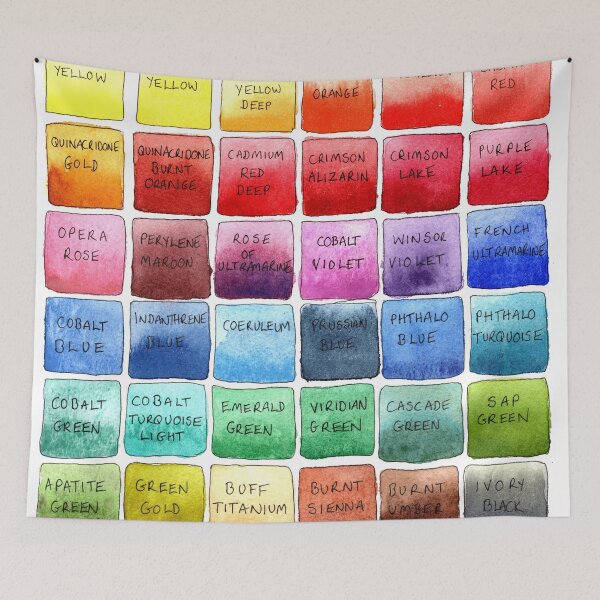 YELLOW
YELLOW
YELLOW
DEEP
ORANGE
RED
QUINACRIDONE
GOLD
QUINACRIDONE
BURNT
ORANGE
CADMIUM
RED
DEEP
CRIMSON
ALIZARIN
CRIMSON
LAKE
PURPLE
LAKE
OPERA
ROSE
PERYLENE
MAROON
ROSE
OF
ULTRAMARINE
COBALT
VIOLET
WINSOR
VIOLET.
FRENCH
ULTRAMARINE
COBALT
BLUE
INDANTHRENE
BLUE
COERULEUM
PRUSSIAN
BLUE
PHTHALO
BLUE
PHTHALO
TURQUOISE
COBALT
GREEN
COBALT
TURQUOISE
LIGHT
EMERALD
GREEN
VIRIDIAN
GREEN
CASCADE
GREEN
SAP
GREEN
APATITE
GREEN
GREEN
GOLD
BUFF
TITANIUM
BURNT
SIENNA
BURNT
UMBER
IVORY
BLACK